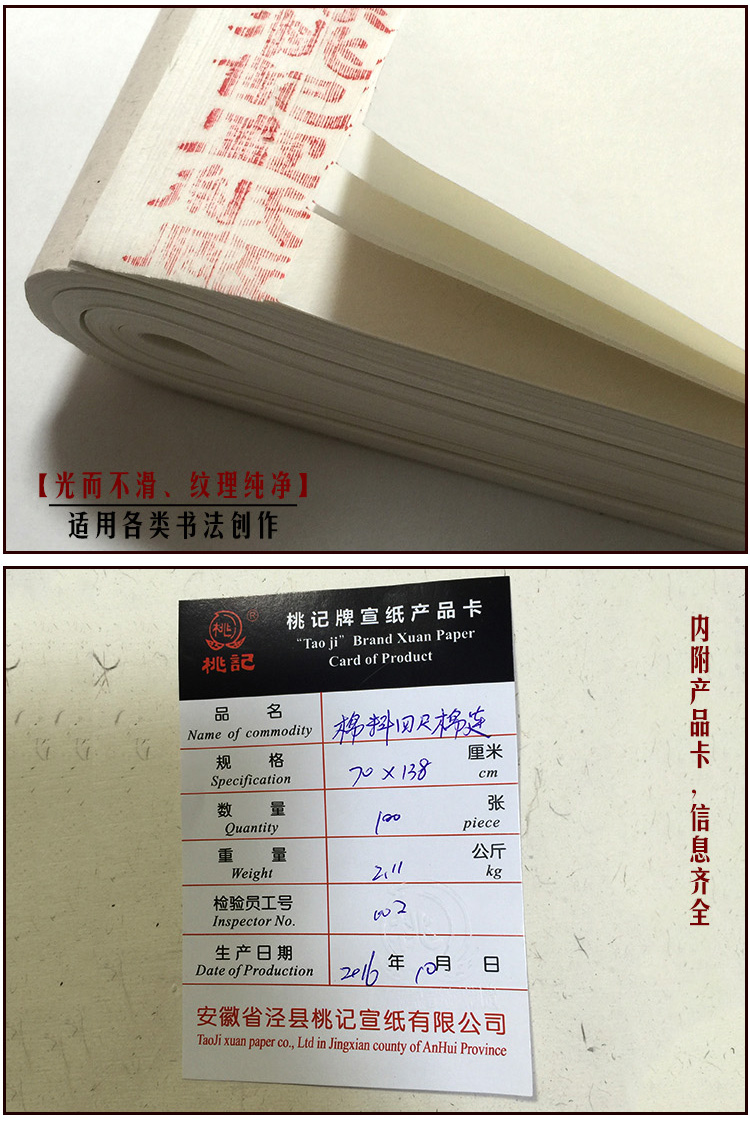 桃
记
宣
纸
厂
【光而不滑、纹理纯净】
适用各类书法创作
桃 ®
桃記
桃记牌宣纸产品卡
“Tao ji” Brand Xuan Paper
Card of Product
品 名 棉料四尺棉连
Name of commodity
规 格 70 × 138 厘米
Specification cm
数 量 100 张
Quantity piece
重 量 2.11 公斤
Weight kg
检验员工号 002
Inspector No.
生产日期 2016 年 10 月 日
Date of Production
安徽省泾县桃记宣纸有限公司
TaoJi xuan paper co., Ltd in Jingxian county of AnHui Province
内附产品卡，信息齐全